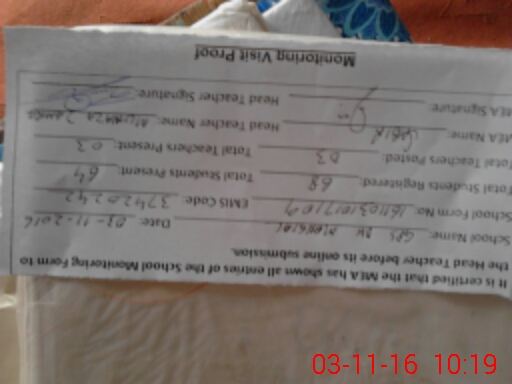 Monitoring Visit Proof
It is certified that the MEA has shown all entries of the School Monitoring Form to
the Head Teacher before its online submission.
School Name: GPS Date: 03-11-2016
School Form No: EMIS Code: 37420242
Total Students Registered: 68 Total Students Present: 64
Total Teachers Posted: 03 Total Teachers Present: 03
MEA Name: SABIR Head Teacher Name:
MEA Signature: Head Teacher Signature:
03-11-16 10:19